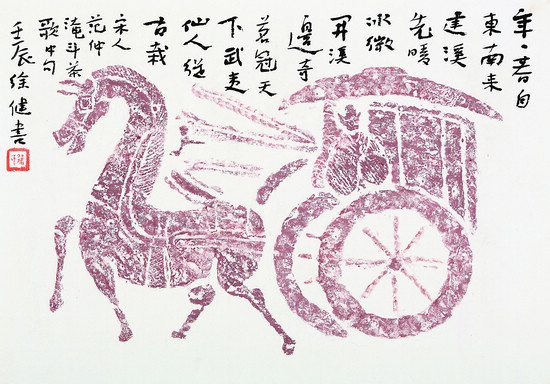 年〻春自
東南来
建溪
先暖
冰微
開溪
邊奇
茗冠天
下武夷
仙人從
古栽
宋人
范仲
淹斗茶
歌中句
壬辰徐健書